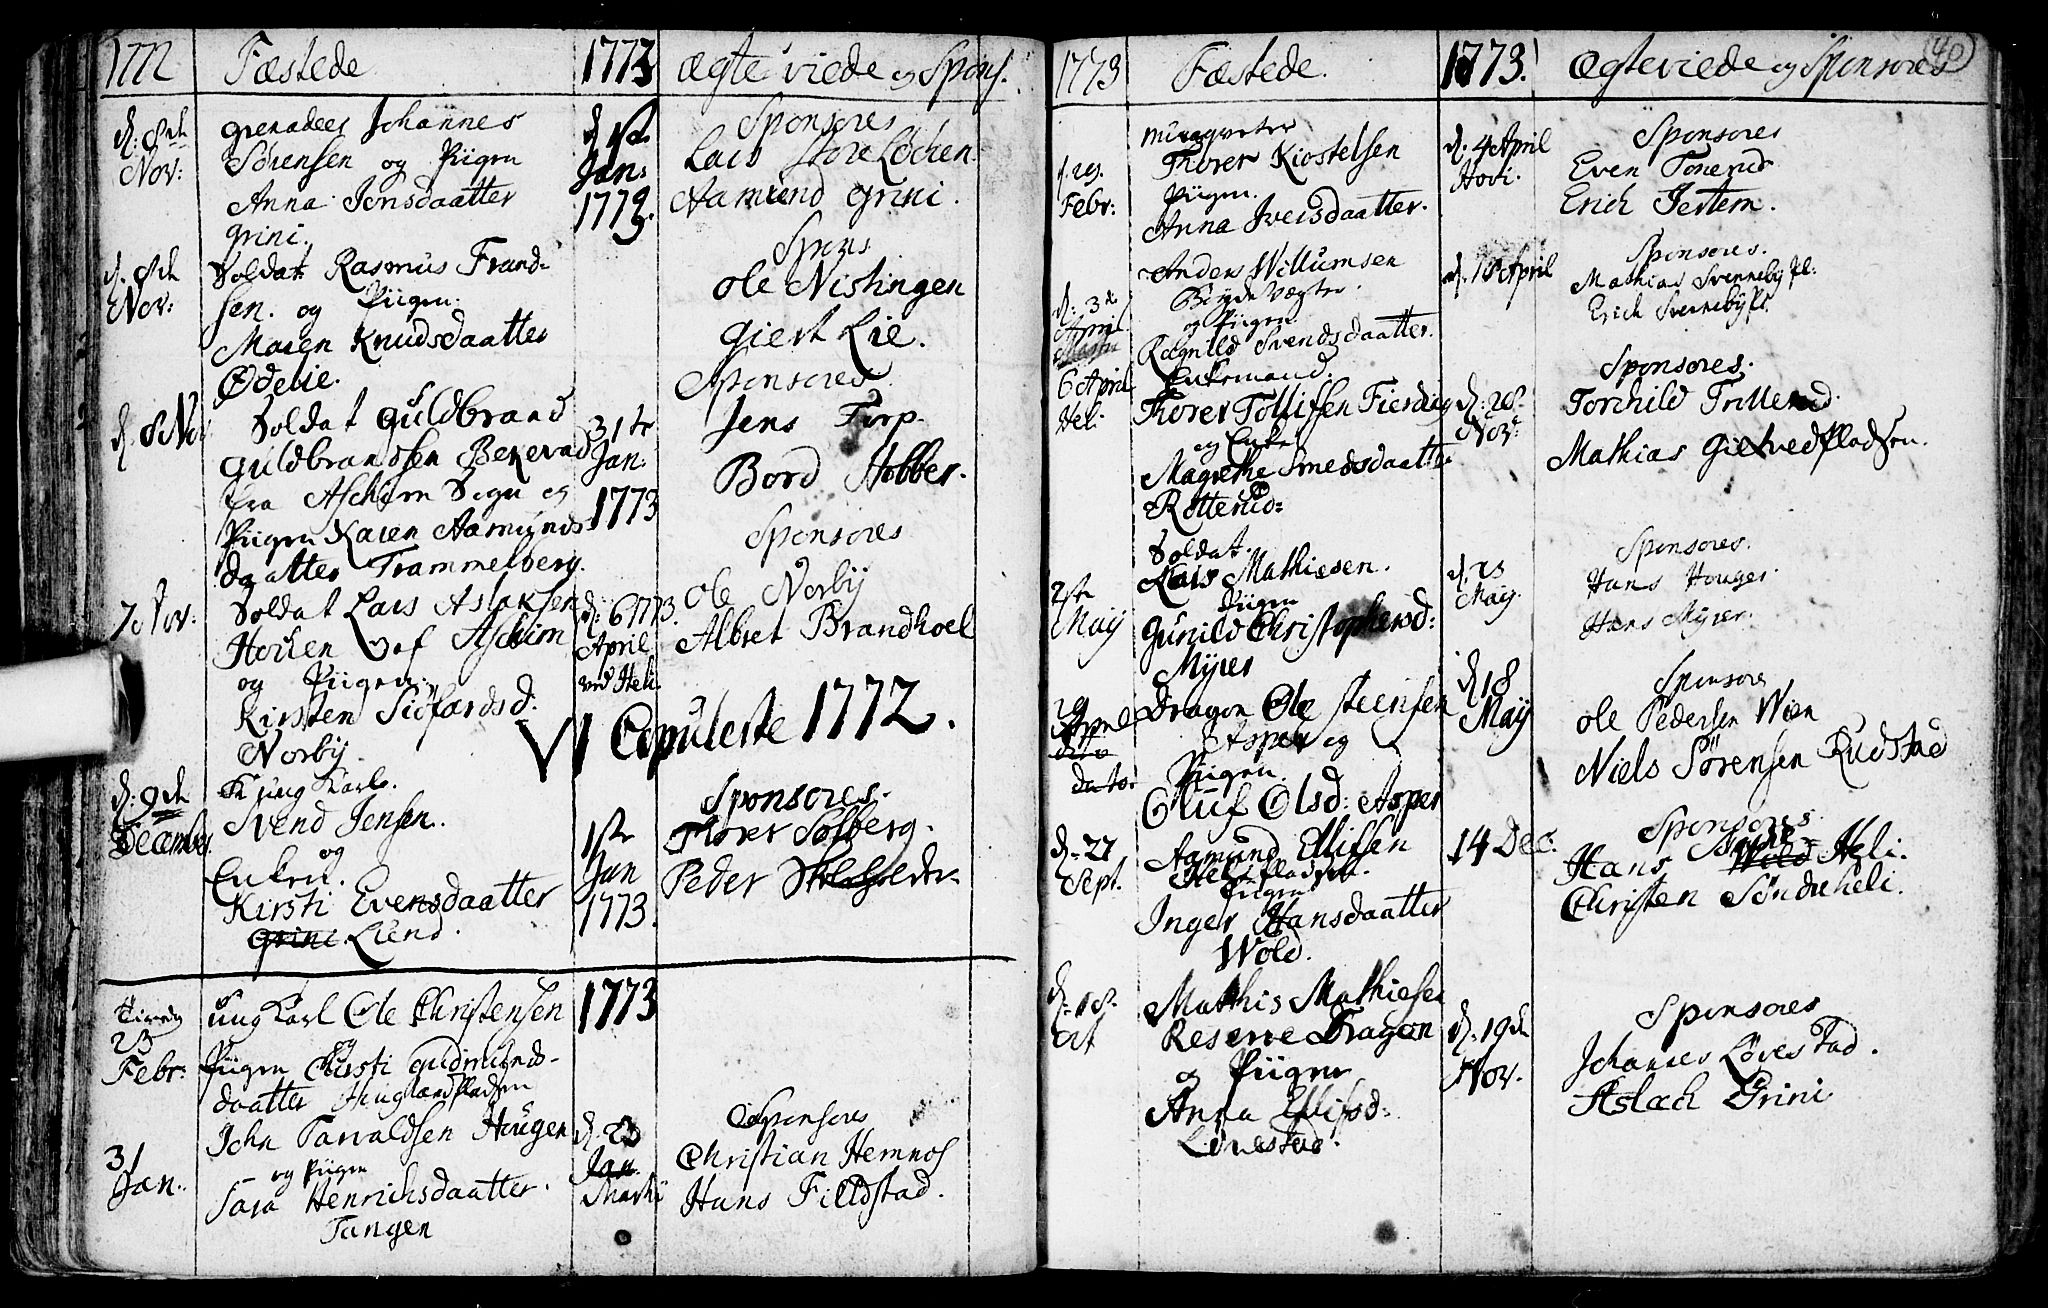 1772 Fæstede 1773 ægte viede og Spons.
d. 8de Nov: grenadeer Johannes
Sørensen og Piigen
Anna Jensdaatter
grini.
d 1ste Jan: 1773.
Sponsores
Lars Store Løchen
Aamund Grini.
d. 8de Nov: Soldat Rasmus Frand-
sen. og Piigen:
Maren Knudsdaatter
Ødelie.
Spons
Ole Nistingen
Giert Lie.
d. 8 Nov Soldat Guldbrand
Guldbrandsen Bekevad
fra Aschim Sogn og
Piigen Karen Aamunds
daatter Trammelberg.
31te Jan: 1773
Sponsores
Jens Torp.
Bord Hobber.
7 Nov: Soldat Lars Aslaksen
Houen af Aschim
og Piigen:
Kirsten Siofardsd:
Norby.
d: 6 1773.
April
ved Heli.
Sponsores
Ole Norby
Albret Brandhoel
VI Copulerte 1772.
d. 9de December Ung Karl.
Svend Jensen.
og
Enken.
Kirsti Evensdaatter
Grini Lund.
1ste Jan 1773.
Sponsores.
Thorer Solberg.
Peder
1773
23 Febr: ung Karl Ole Christensen
og
Piigen Kirsti Gudmunds-
daatter Huuglandpladsen
31 Jan. John Tarvaldsen Hougen
og Piigen
Sara Henrichsdaatter.
Tangen
d. 23
Jan.
Martii
Sponsores
Christian Hemnes
Hans Fieldstad.
40
1773 Fæstede. 1773. Ægteviede og Sponsores
d. 29. Febr:
Thorer Kiostelsen
Piigen.
Anna Iversdaatter.
d. 4 April
Hovi.
Sponsores
Even Tonerud
Erich Jertem.
d: 3de April
Anders Willumsen
Bøyde Vægter.
og Piigen
Ragnild Svendsdaatter.
d. 18 April
Sponsores.
Mathias Svenneby Pl:
Erich Svenneby Pl.
6 April
Heli.
Enkemand.
Thorer Tollifsen Fierding
og Enke
Magrethe Smedsdaatter
Rotterud:
d: 28. Nov:
Sponsores.
Torchild Trillerud.
Mathias Gietvedpladsen.
2de Maij
Soldat.
Lars Mathiesen.
Piigen
Gunild Christophersd:
Myrer
d. 23 Maij.
Sponsores.
Hans Houger.
Hans Myrer.
29 April
dito
dato.
Dragon Ole Steensen
Asper og
Piigen.
Oluf Olsd: Asper
d 18 Maij
Sponsores
Ole Pedersen Wien
Niels Sørensen Rudstad
d: 27 Sept.
Aamund Ellifsen
Heli Pladsen.
Piigen
Inger Hansdaatter
Wold.
14 Dec.
Sponsores
Hans Wold Heli.
Christen Søndreheli.
d: 18. oct
Mathis Mathiesen
Reserve Dragon
og Piigen
Anna Ellifsd:
Lövestad.
d. 19de Nov.
Sponsores
Johannes Løvestad.
Aslach Grini